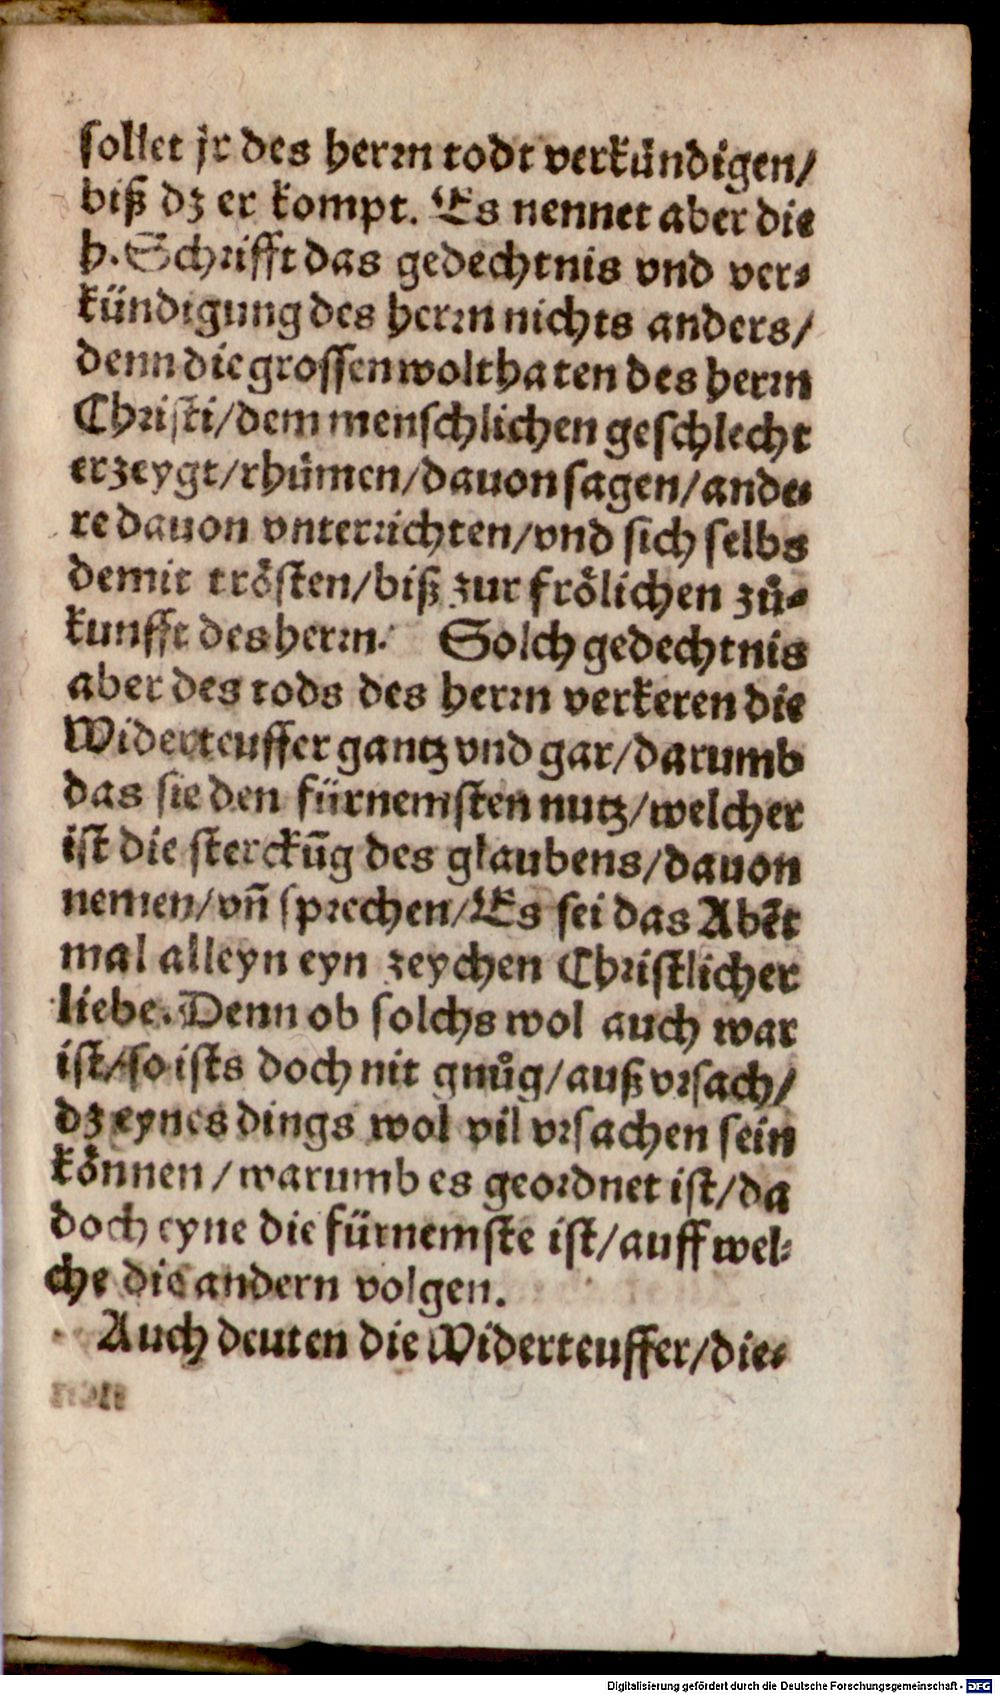 sollet jr des herrn todt verkündigen/
biß dz er kompt. Es nennet aber die
h. Schrifft das gedechtnis vnd ver⸗
kündigung des herrn nichts anders/
denn die grossen wolthaten des herrn
Christi/dem menschlichen geschlecht
erzeygt/rhümen/dauon sagen/ande⸗
re dauon vnterrichten/vnd sich selbs
demit trösten/biß zur frölichen zů⸗
kunfft des herrn. Solch gedechtnis
aber des tods des herrn verkeren die
Widerteuffer gantz vnd gar/darumb
das sie den fürnemsten nutz/welcher
ist die sterckūg des glaubens/dauon
nemen/vñ sprechen/Es sei das Abēt
mal alleyn eyn zeychen Christlicher
liebe. Denn ob solchs wol auch war
ist/so ists doch nit gnůg/auß vrsach/
dz eynes dings wol vil vrsachen sein
können/warumb es geordnet ist/da
doch eyne die fürnemste ist/auff wel⸗
che die andern volgen.
Auch deuten die Widerteuffer/die⸗
Digitalisierung gefördert durch die Deutsche Forschungsgemeinschaft - DFG